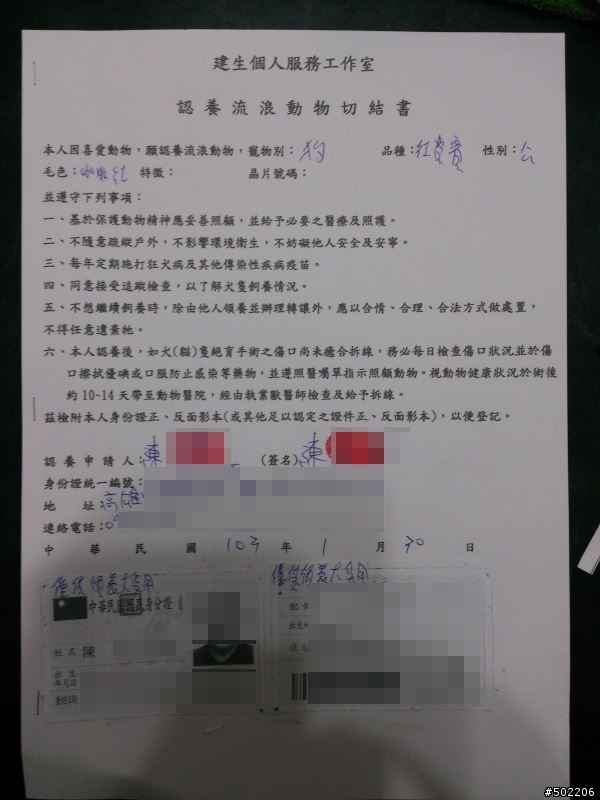 建生個人服務工作室
認養流浪動物切結書
本人因喜愛動物,願認養流浪動物,寵物別:狗 品種:紅貴賓 性別:公
毛色:咖啡紅 特徵: 晶片號碼:
並遵守下列事項:
一、基於保護動物精神應妥善照顧,並給予必要之醫療及照護。
二、不隨意疏縱戶外,不影響環境衛生,不妨礙他人安全及安寧。
三、每年定期施打狂犬病及其他傳染性疾病疫苗。
四、同意接受追蹤檢查,以了解犬隻飼養情況。
五、不想繼續飼養時,除由他人領養並辦理轉讓外,應以合情、合理、合法方式做處置,
不得任意遺棄牠。
六、本人認養後,如犬(貓)隻絕育手術之傷口尚未癒合拆線,務必每日檢查傷口狀況並於傷
口擦拭優碘或口服防止感染等藥物,並遵照醫囑單指示照顧動物。視動物健康狀況於術後
約10~14天帶至動物醫院,經由執業獸醫師檢查及給予拆線。
茲檢附本人身份證正、反面影本(或其他足以認定之證件正、反面影本),以便登記。
認養申請人:陳 (簽名)陳
身份證統一編號:
地 址:高雄
連絡電話:09
中華民國103年1月30日
僅供領養犬隻用 僅供領養犬隻用
中華民國國民身分證
姓名 陳
出生
年月日
配偶
#502206